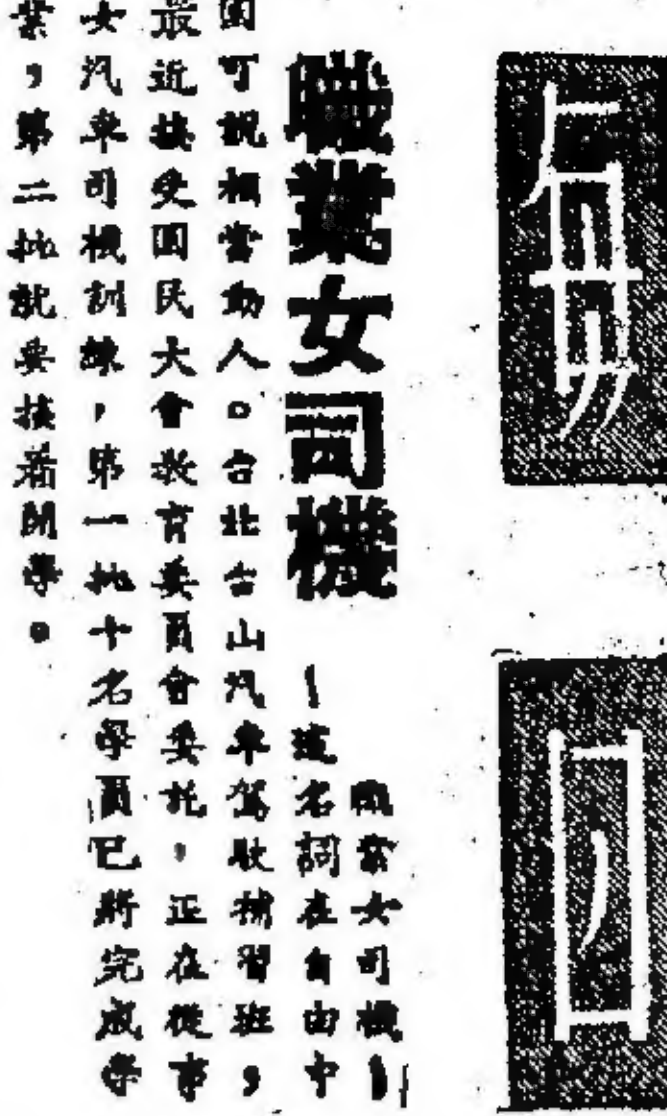 每日
職業女司機
職業女司機—
—這名詞在自由中
國可說相當動人。台北台山汽車駕駛補習班，
最近接受國民大會教育委員會委託，正在從事
女汽車司機訓練，第一批十名學員已將完成學
業，第二批就要接着開學。